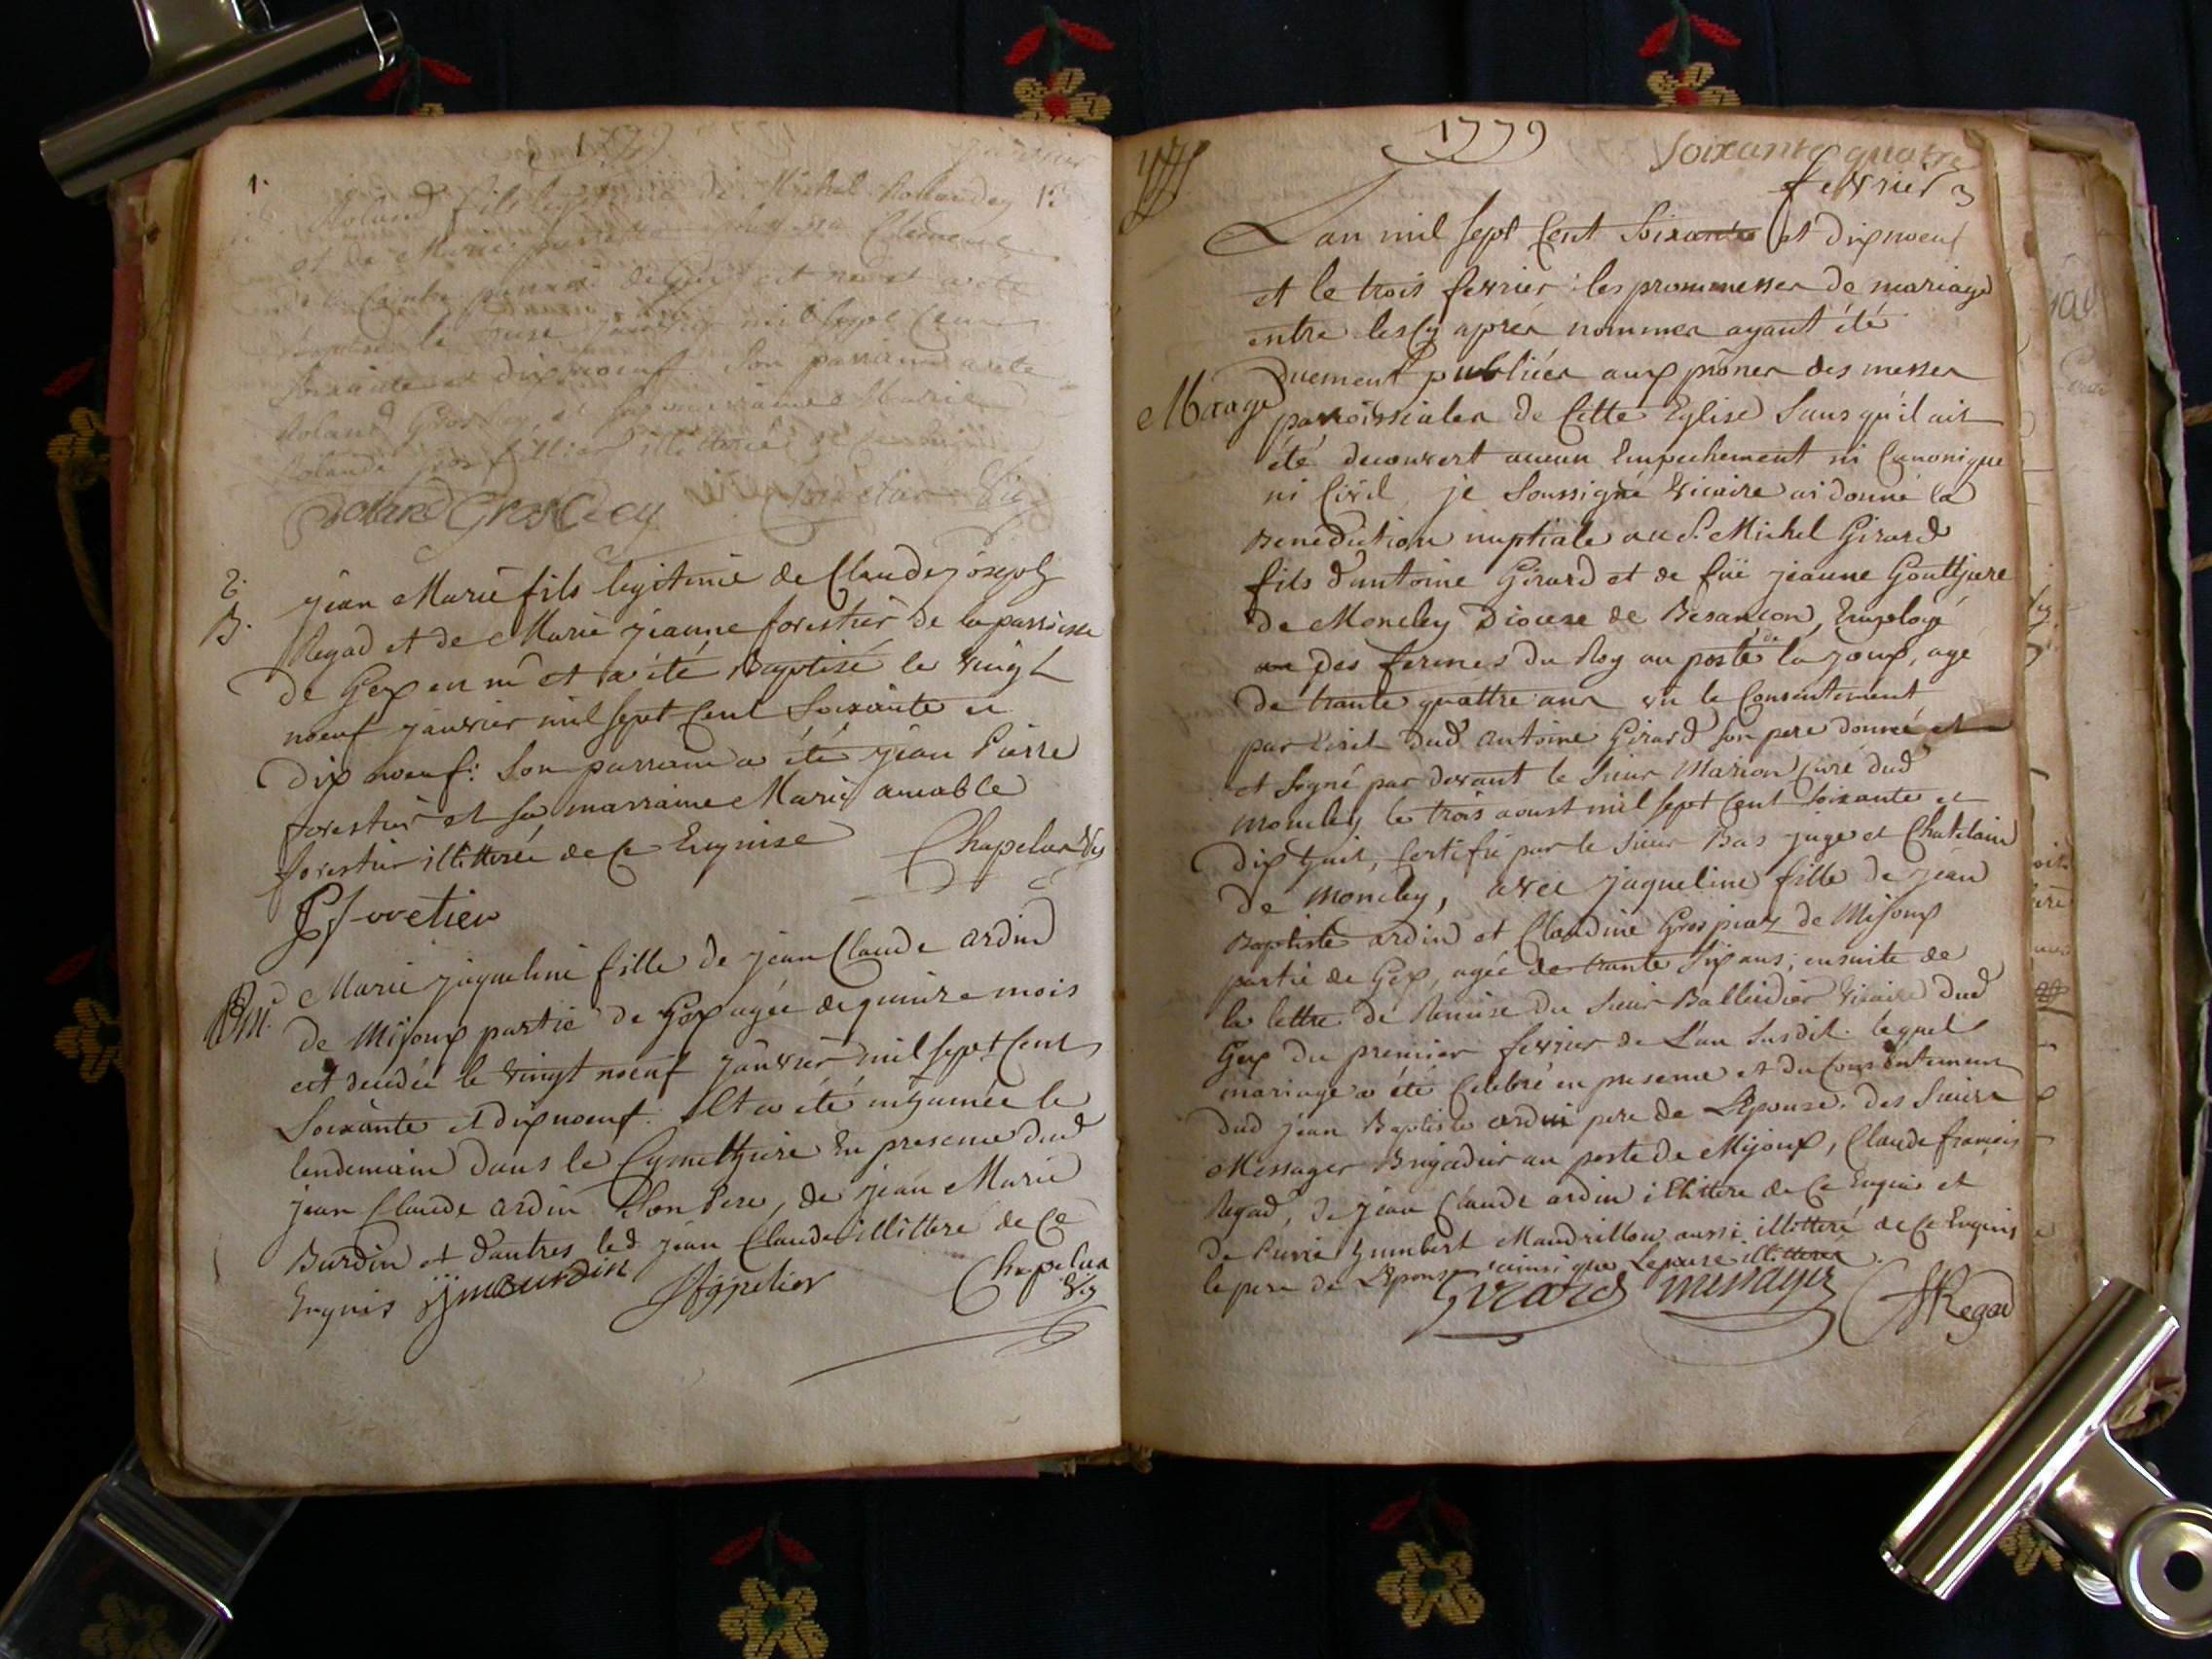 1779
janvier
1.
1.
Roland fils legitime de Michel Rolandey
et de Marie pierrette Clement
de la Combe paroisse de Gex est né et a été
Baptisé le onze janvier mil sept Cent
Soixante et dix noeuf. Son parrain a été
Roland Grosgey et sa marraine Marie
Rolande illitteré de Ce
Roland GrosGey
2.
B.
jean Marie fils legitime de Claude joseph
Regad et de Marie jeanne forestier de la parroisse
de Gex en né et a été Baptisé le vingt
noeuf janvier mil sept Cent Soixante et
dix noeuf: Son parrain a été jean Pierre
forestier et sa marraine Marie aimable
forestier illitterée de Ce Enquise
Chapelu Vic
P f ooretier
Marie jaqueline fille de jean Claude ardin
de Mijoux partie de Gex agée de quinze mois
est decedée le vingt noeuf janvier mil sept Cent
Soixante et dix noeuf. Et a été inhumée le
lendemain dans le Cymetthiere En presence dud
jean Claude ardin Son Pere, de jean Marie
Burdin et d'autres led jean Claude illitteré de Ce
Enquis jjmBurdin
Chapelu
Vic
1779
Soixante quatre
fevrier 3
L'an mil sept Cent Soixante et dix noeuf
et le trois fevrier les prommesses de mariage
entre les Cy aprés nommés ayant été
Duement publiées aux prônes des messes
Mariage
parroissiales de Cette Eglise Sans qu'il ait
été decouvert aucun Empechement ni Canonique
ni Civil, je Soussigné Vicaire ai donné la
Benediction nuptiale au S. Michel Girard
fils d'antoine Girard et de füe jeanne Gouthiere
de Moncley Diocese de Besançon, Employé
des fermes du Roy au poste de la joux, agé
de trante quattre ans vu le Consentement
par Ecrit dud antoine Girard Son pere donné et
et Signé par devant le Sieur Marion Curé dud
moncley le trois aoust mil sept Cent soixante et
dix huit, Certifié par le Sieur Bas juge et Chatelain
de moncley, avec jaqueline fille de jean
Baptiste ardin et Claudine Grospiaz de Mijoux
partie de Gex, agée de trante Six ans; ensuite de
la lettre de Remise du Sieur Balleidier Vicaire dud
Gex du premier fevrier de L'an Susdit. lequel
mariage a été Celebré en presence et du Consentement
dud jean Baptiste ardin pere de L'Epouse. des Sieurs
Messager Brigadier au poste de Mijoux, Claude françois
Regad, de jean Claude ardin illitteré de Ce Enquis et
de Pierre humbert Maudrillon aussi illitteré de Ce Enquis
le pere de L'Epouse ainsi que L'epouse illitterés.
Girard messager CfRegad